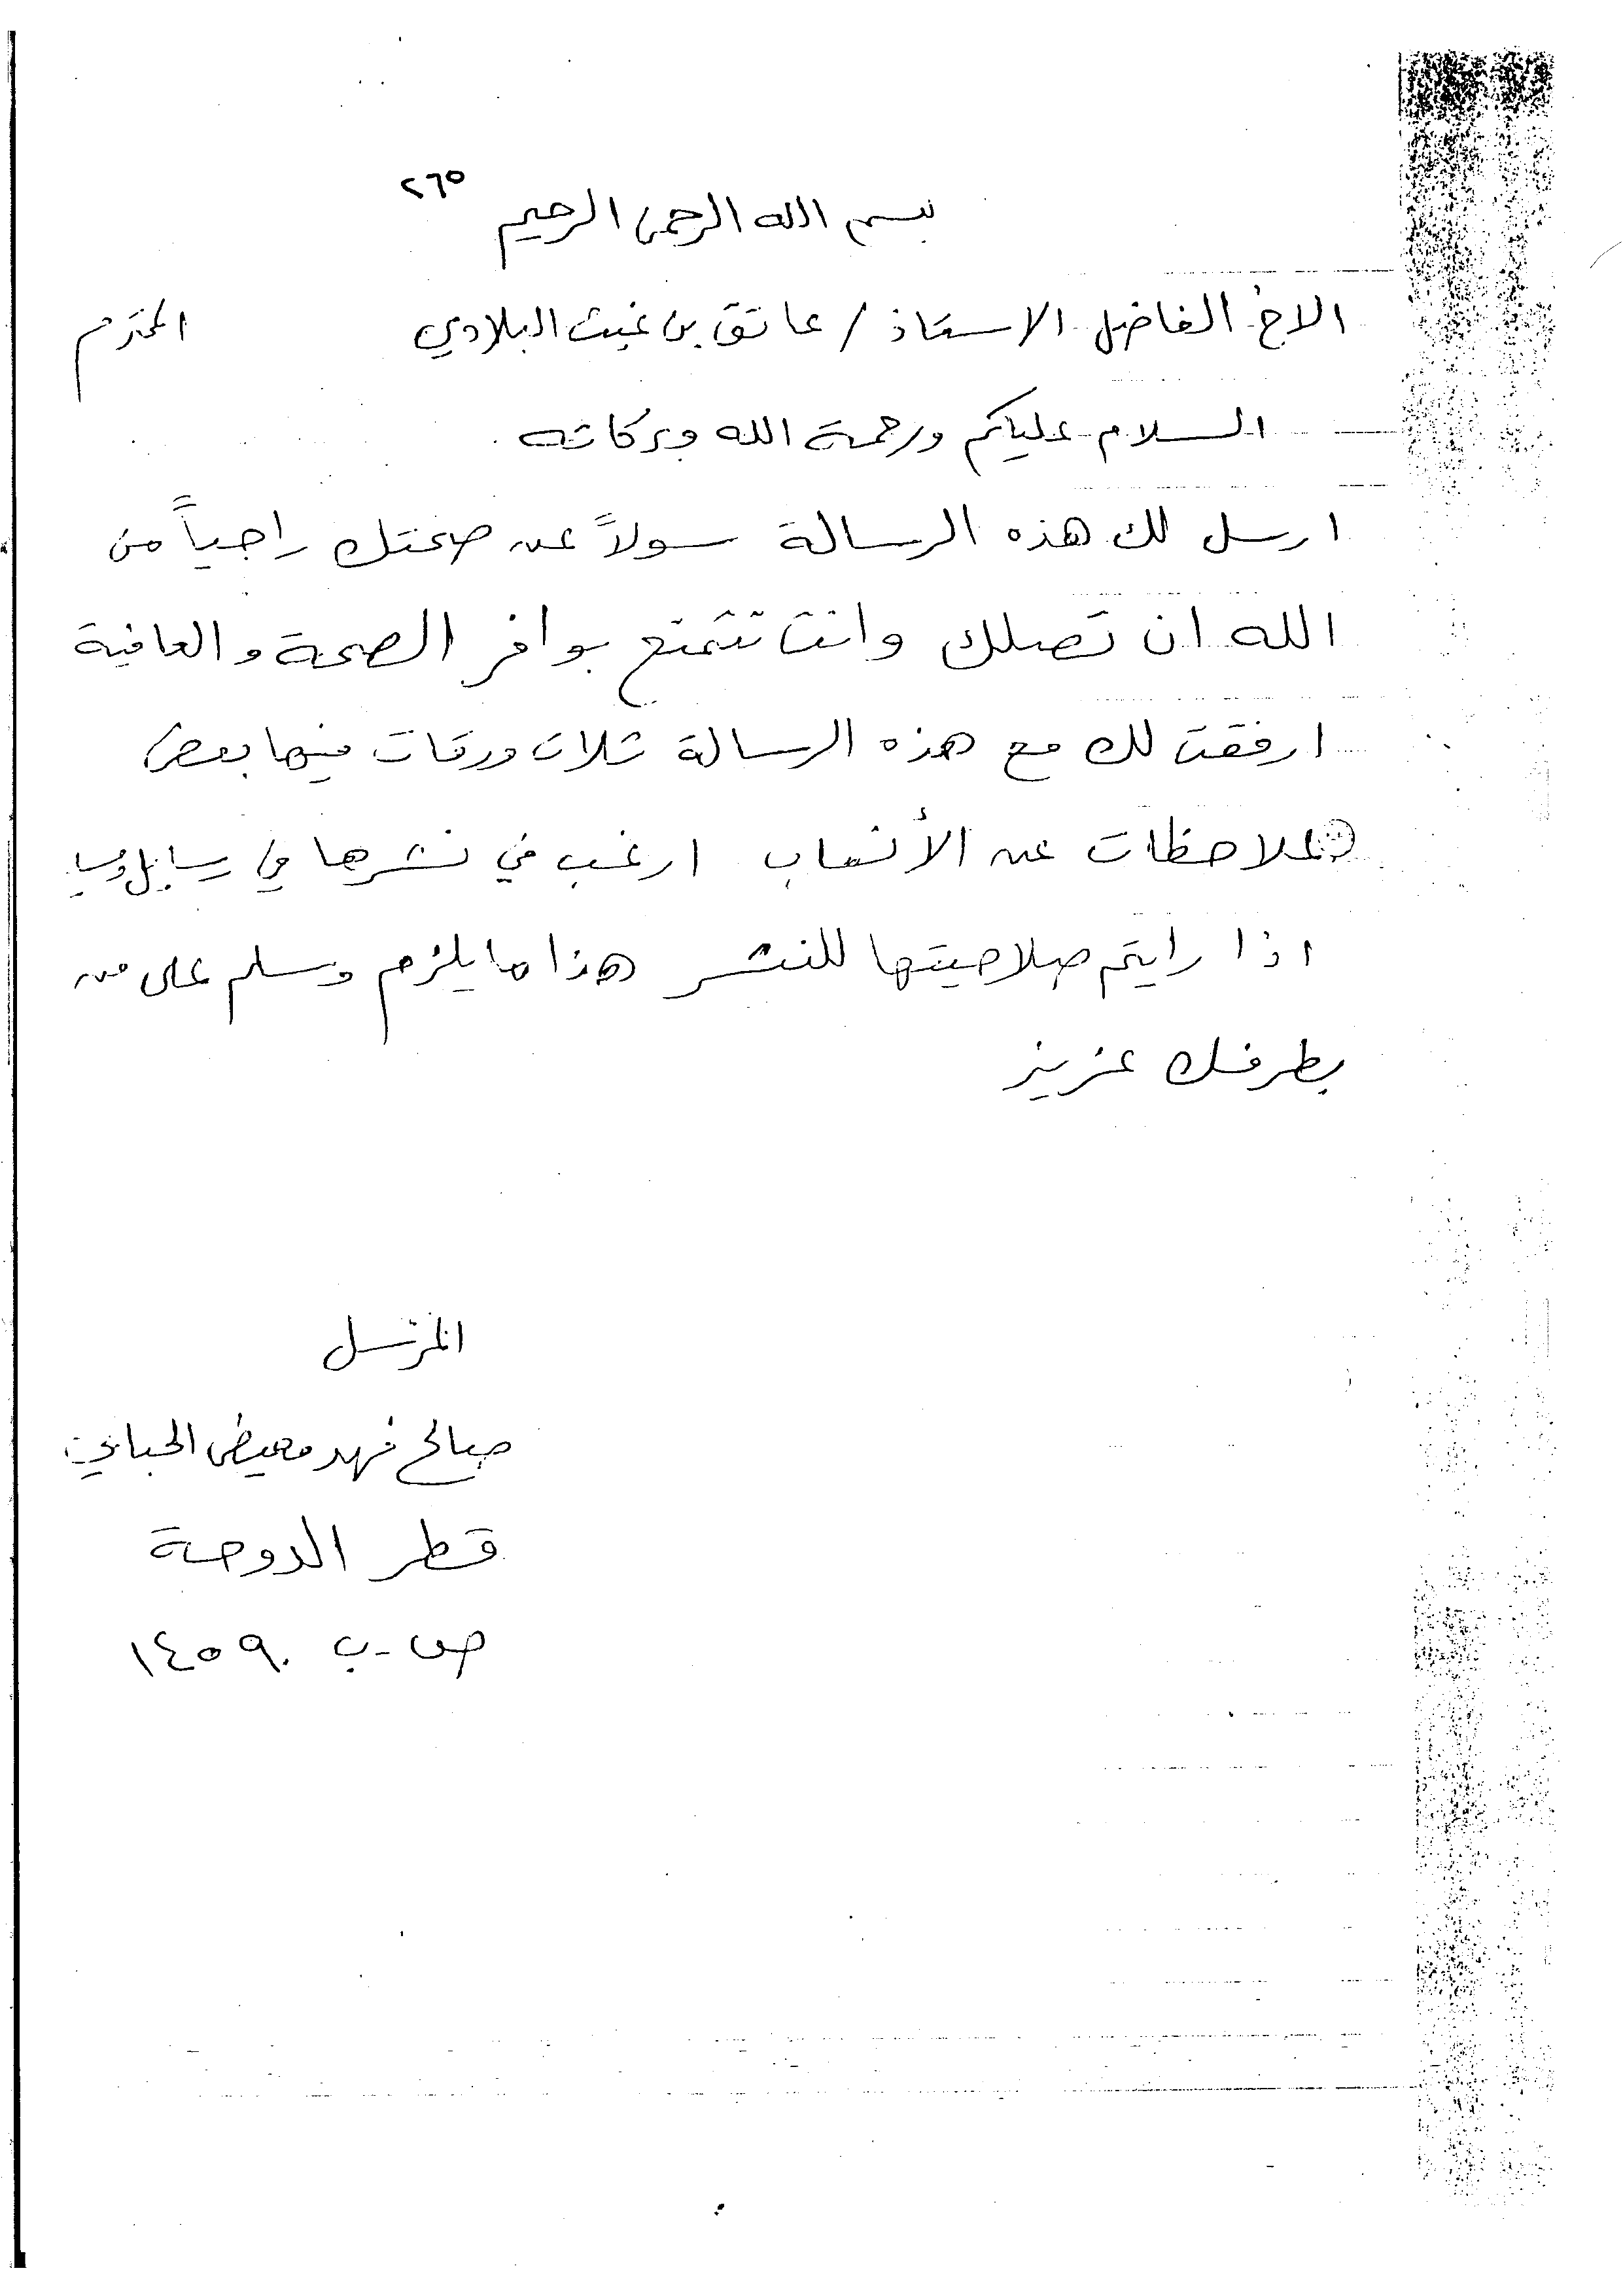 ٢٦٥
بسم الله الرحمن الرحيم
الاخ الفاضل الاستاذ / عاتق بن غيث البلادي المحترم
السلام عليكم ورحمة الله وبركاته
ارسل لك هذه الرسالة سولاً عن صحتك راجياً من
الله ان تصلك وانت تتمتع بوافر الصحة والعافية
ارفقت لك مع هذه الرسالة ثلاث ورقات فيها بعض
ملاحظات عن الأنساب ارغب في نشرها في رسايل
اذا رايتم صلاحيتها للنشر هذا ما يلزم وسلم على من
بطرفك عزيز
المرسل
صالح فهد معيض الحبابي
قطر الدوحة
ص.ب ١٤٥٩٠